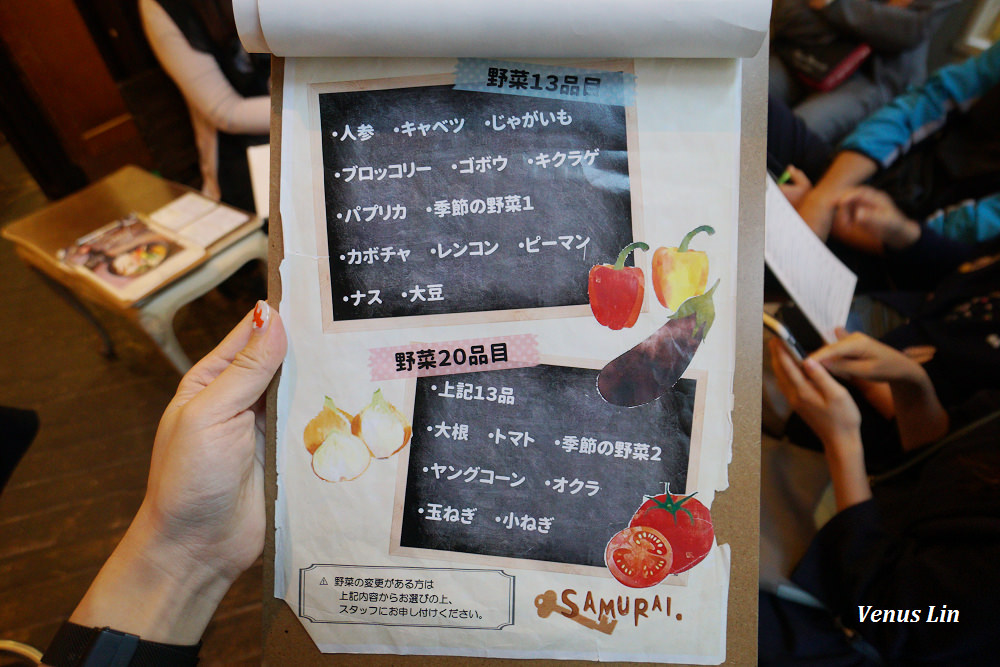 野菜13品目
・人参 ・キャベツ ・じゃがいも
・ブロッコリー ・ゴボウ ・キクラゲ
・パプリカ ・季節の野菜1
・カボチャ ・レンコン ・ピーマン
・ナス ・大豆
野菜20品目
・上記13品
・大根 ・トマト ・季節の野菜2
・ヤングコーン ・オクラ
・玉ねぎ ・小ねぎ
⚠ 野菜の変更がある方は
上記内容からお選びの上、
スタッフにお申し付けください。
SAMURAI.
Venus Lin